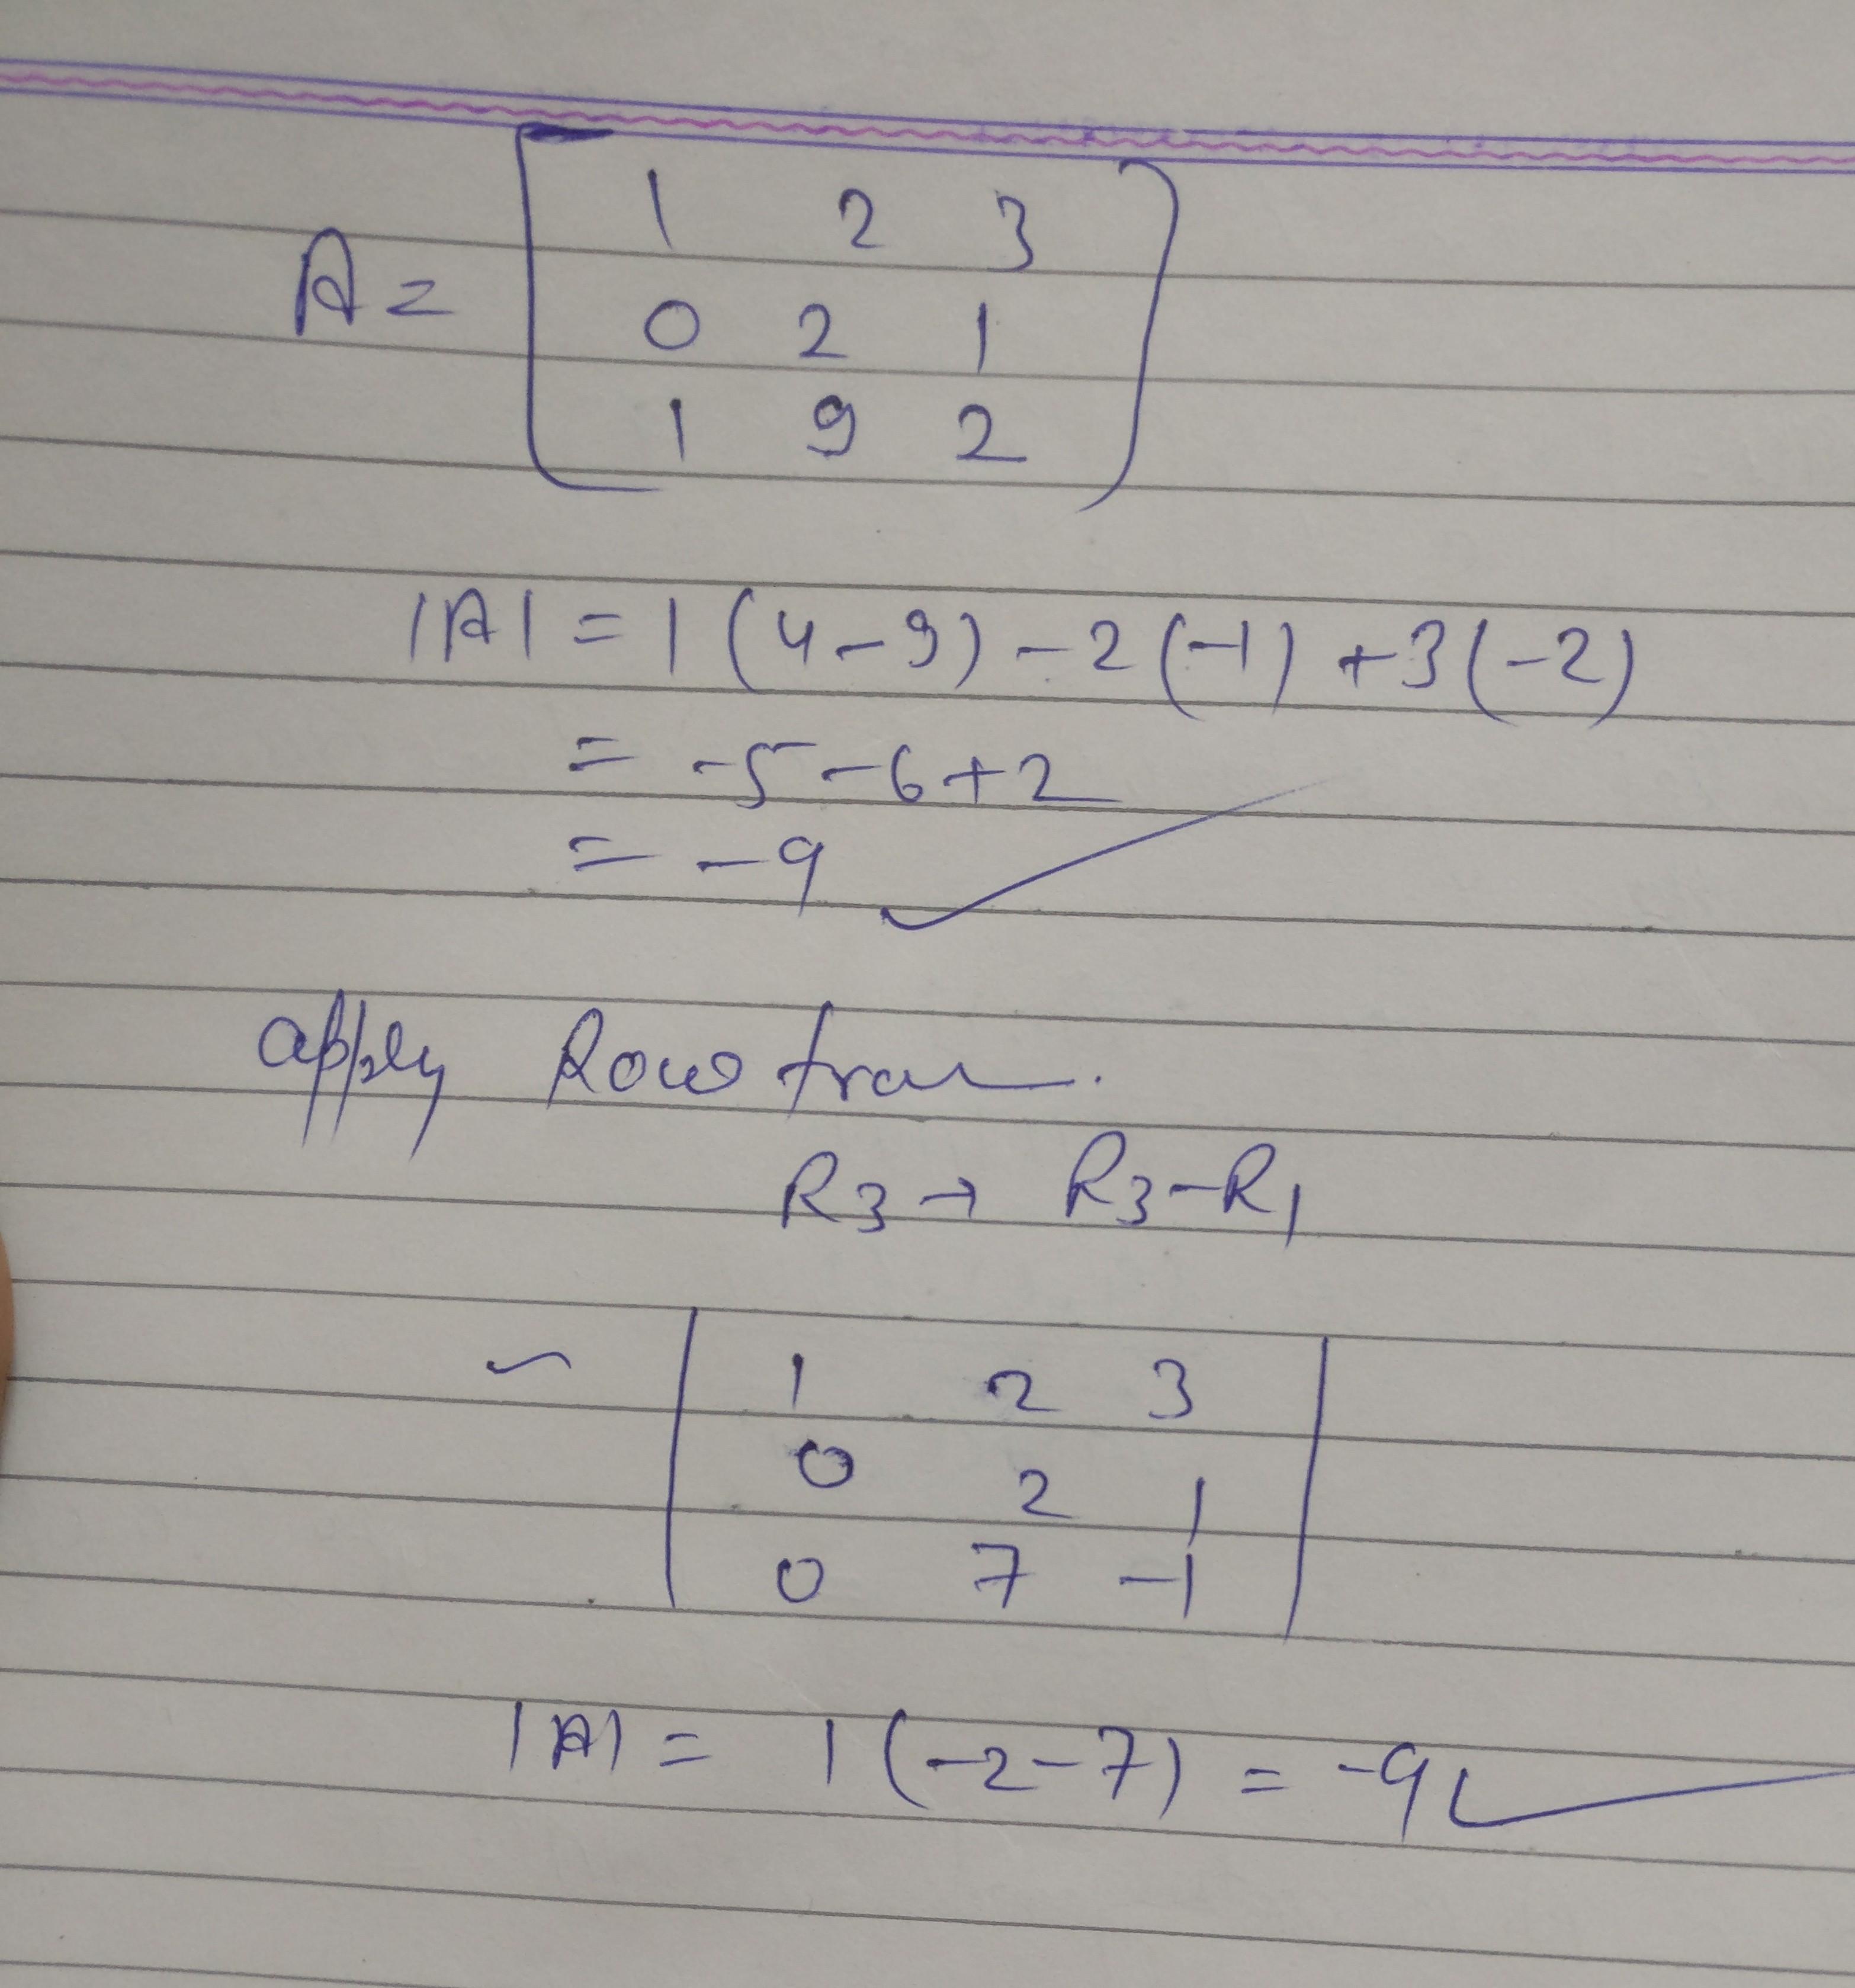 A = [ 1 2 3
0 2 1
1 9 2 ]
|A| = 1 (4-9) -2(-1) +3(-2)
= -5-6+2
= -9 ✓
apply Row tran.
R3 → R3-R1
~ | 1 2 3 |
| 0 2 1 |
| 0 7 -1 |
|A| = 1 (-2-7) = -9 ✓